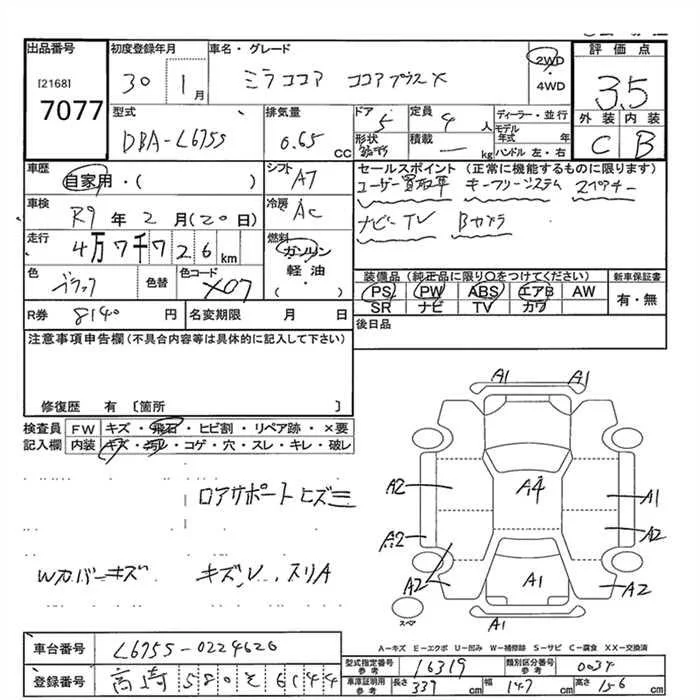 出品番号 初度登録年月 車名・グレード 評価点
[2168] 30 1月 ミラココア ココアプラスX 2WD・4WD 3.5
7077 外装 内装
C B
型式 排気量 ドア 定員 ディーラー・並行
DBA-L675S 0.65 CC 5 4人 モデル年式 年
形状 積載 kg ハンドル 左・右
車歴 シフト セールスポイント (正常に機能するものに限ります)
自家用・( ) AT ユーザー買取車 キーフリーシステム スペアキー
車検 冷房 ナビ-TV Bカメラ
R9年2月(20日) AC
走行 燃料
4万7千726km ガソリン
軽油
・( )
色 色替 色コード 装備品 (純正品に限り○をつけてください) 新車保証書
ブラック X07 PS PW ABS エアB AW 有・無
SR ナビ TV カワ
R券 8140 円 名変期限 月 日 後日品
注意事項申告欄(不具合内容等は具体的に記入して下さい)
修復歴 有 〔箇所 〕
検査員 FW キズ・飛石・ヒビ割・リペア跡・×要
記入欄 内装 キズ・汚れ・コゲ・穴・スレ・キレ・破レ
A1 A1
ロアサポートヒズミ
A2 A4 A1
A2 A2
Wカバーキズ キズU、スリA
A2 A1 A2
スペア A1
A-キズ E-エクボ U-凹み W-補修跡 S-サビ C-腐食 XX-交換済
車台番号 L675S-0224626 型式指定番号 参考 16319 類別区分番号 参考 0034
登録番号 高崎 580 そ 6144 車庫証明用 参考 長さ 339 cm 幅 147 cm 高さ 156 cm